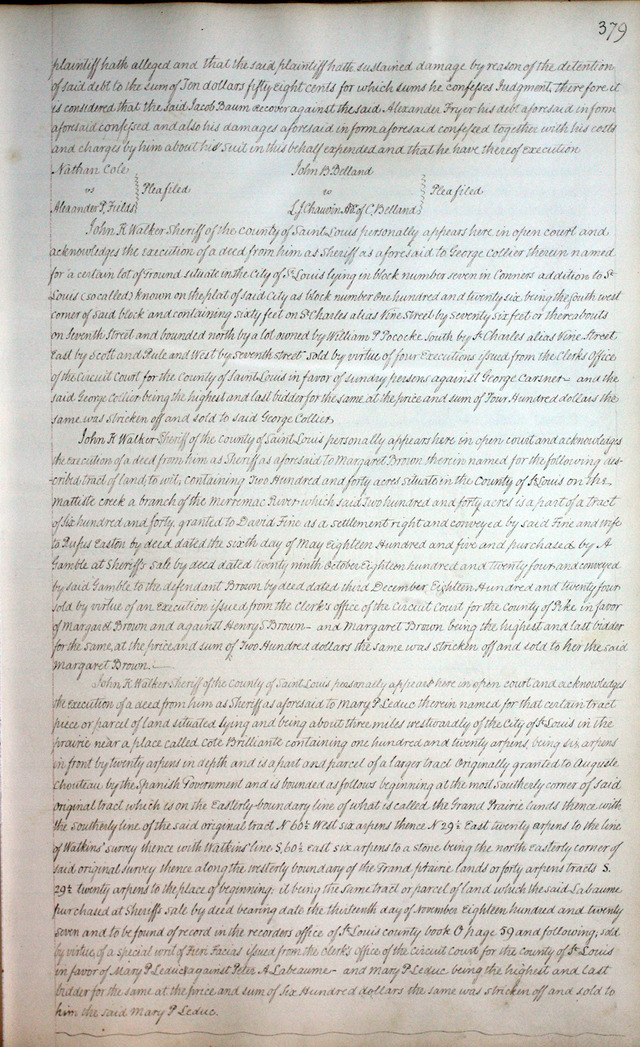 379
plaintiff hath alleged and that the said plaintiff hath sustained damage by reason of the detention
of said debt to the sum of Ten dollars fifty eight cents for which sums he confesses Judgment, therefore it
is considered that the Said Jacob Baum recover against the said Alexander Fryer his debt aforesaid in form
aforesaid confessed and also his damages aforesaid in form aforesaid confessed together with his costs
and charges by him about his suit in this behalf expended and that he have thereof execution
Nathan Cole
vs } Plea filed
Alexander P. Fields
John B Belland
vs } Plea filed
L J Chauvin Adx of C. Belland
John K Walker Sheriff of the county of Saint Louis personally appears here in open court and
acknowledges the execution of a deed from him as Sheriff as aforesaid to George Collier therein named
for a certain lot of Ground situate in the City of St Louis lying in block number seven in Conners addition to St
Louis (so called) known on the plat of said City as block number One hundred and twenty six being the South west
corner of Said block and containing sixty feet on St Charles alias Vine Street by seventy six feet or thereabouts
on Seventh Street and bounded north by a lot owned by William P Pococke South by St Charles alias Vine Street
East by Scott and Rule and West by Seventh street sold by virtue of four Executions issued from the Clerks Office
of the Circuit Court for the County of Saint Louis in favor of sundry persons against George Carsner – and the
said George Collier being the highest and last bidder for the same at the price and sum of Four Hundred dollars the
same was stricken off and sold to said George Collier,
John K Walker Sheriff of the county of Saint Louis personally appears here in open court and acknowledges
the execution of a deed from him as Sheriff as aforesaid to Margard Brown therein named for the following des-
cribed tract of land, to wit, containing Two Hundred and forty acres situate in the County of St Louis on the
Mattiste creek a branch of the Merremac River which said Two hundred and forty acres is a part of a tract
of Six hundred and forty, granted to David Fine as a settlement right and conveyed by said Fine and wife
to Rufus Easton by deed dated the sixth day of May Eighteen Hundred and five and purchased by A
Gamble at Sheriffs Sale by deed dated twenty ninth October Eighteen hundred and twenty four and conveyed
by said Gamble to the defendant Brown by deed dated third December, Eighteen Hundred and twenty four
sold by virtue of an Execution issued from the Clerk's office of the Circuit Court for the County of Pike in favor
of Margard Brown and against Henry S Brown – and Margaret Brown being the highest and last bidder
for the same, at the price and sum of Two Hundred dollars the same was stricken off and sold to her the said
Margaret Brown.
John K Walker Sheriff of the County of Saint Louis personally appears here in open court and acknowledges
the execution of a deed from him as Sheriff as aforesaid to Mary P Leduc therein named for that certain tract
piece or parcel of land situated lying and being about three miles westwardly of the City of St Louis in the
prairie near a place called Cote Brilliante containing one hundred and twenty arpens, being six arpens
in front by twenty arpens in depth and is a part and parcel of a larger tract Originally granted to Auguste
Chouteau by the Spanish Government and is bounded as follows beginning at the most Southerly corner of said
original tract which is on the Easterly boundary line of what is called the Grand Prairie lands thence with
the southerly line of the said original tract N 60½ West six arpens thence N 29½ East twenty arpens to the line
of Watkins' survey thence with Watkins' line S, 60½ east six arpens to a stone being the north easterly corner of
said original survey thence along the westerly boundary of the Grand prairie lands or forty arpens tracts S.
29½ twenty arpens to the place of beginning: it being the Same tract or parcel of land which the said Labaume
purchased at Sheriff's Sale by deed bearing date the thirteenth day of November Eighteen hundred and twenty
seven and to be found of record in the recorders office of St Louis county book O page 59 and following, sold
by virtue of a special writ of Fieri Facias issued from the Clerk's Office of the Circuit Court for the county of St Louis
in favor of Mary P Leduc against Peter A Labeaume – and Mary P Leduc being the highest and last
bidder for the same at the price and sum of Six Hundred dollars the same was stricken off and sold to
him the said Mary P Leduc.